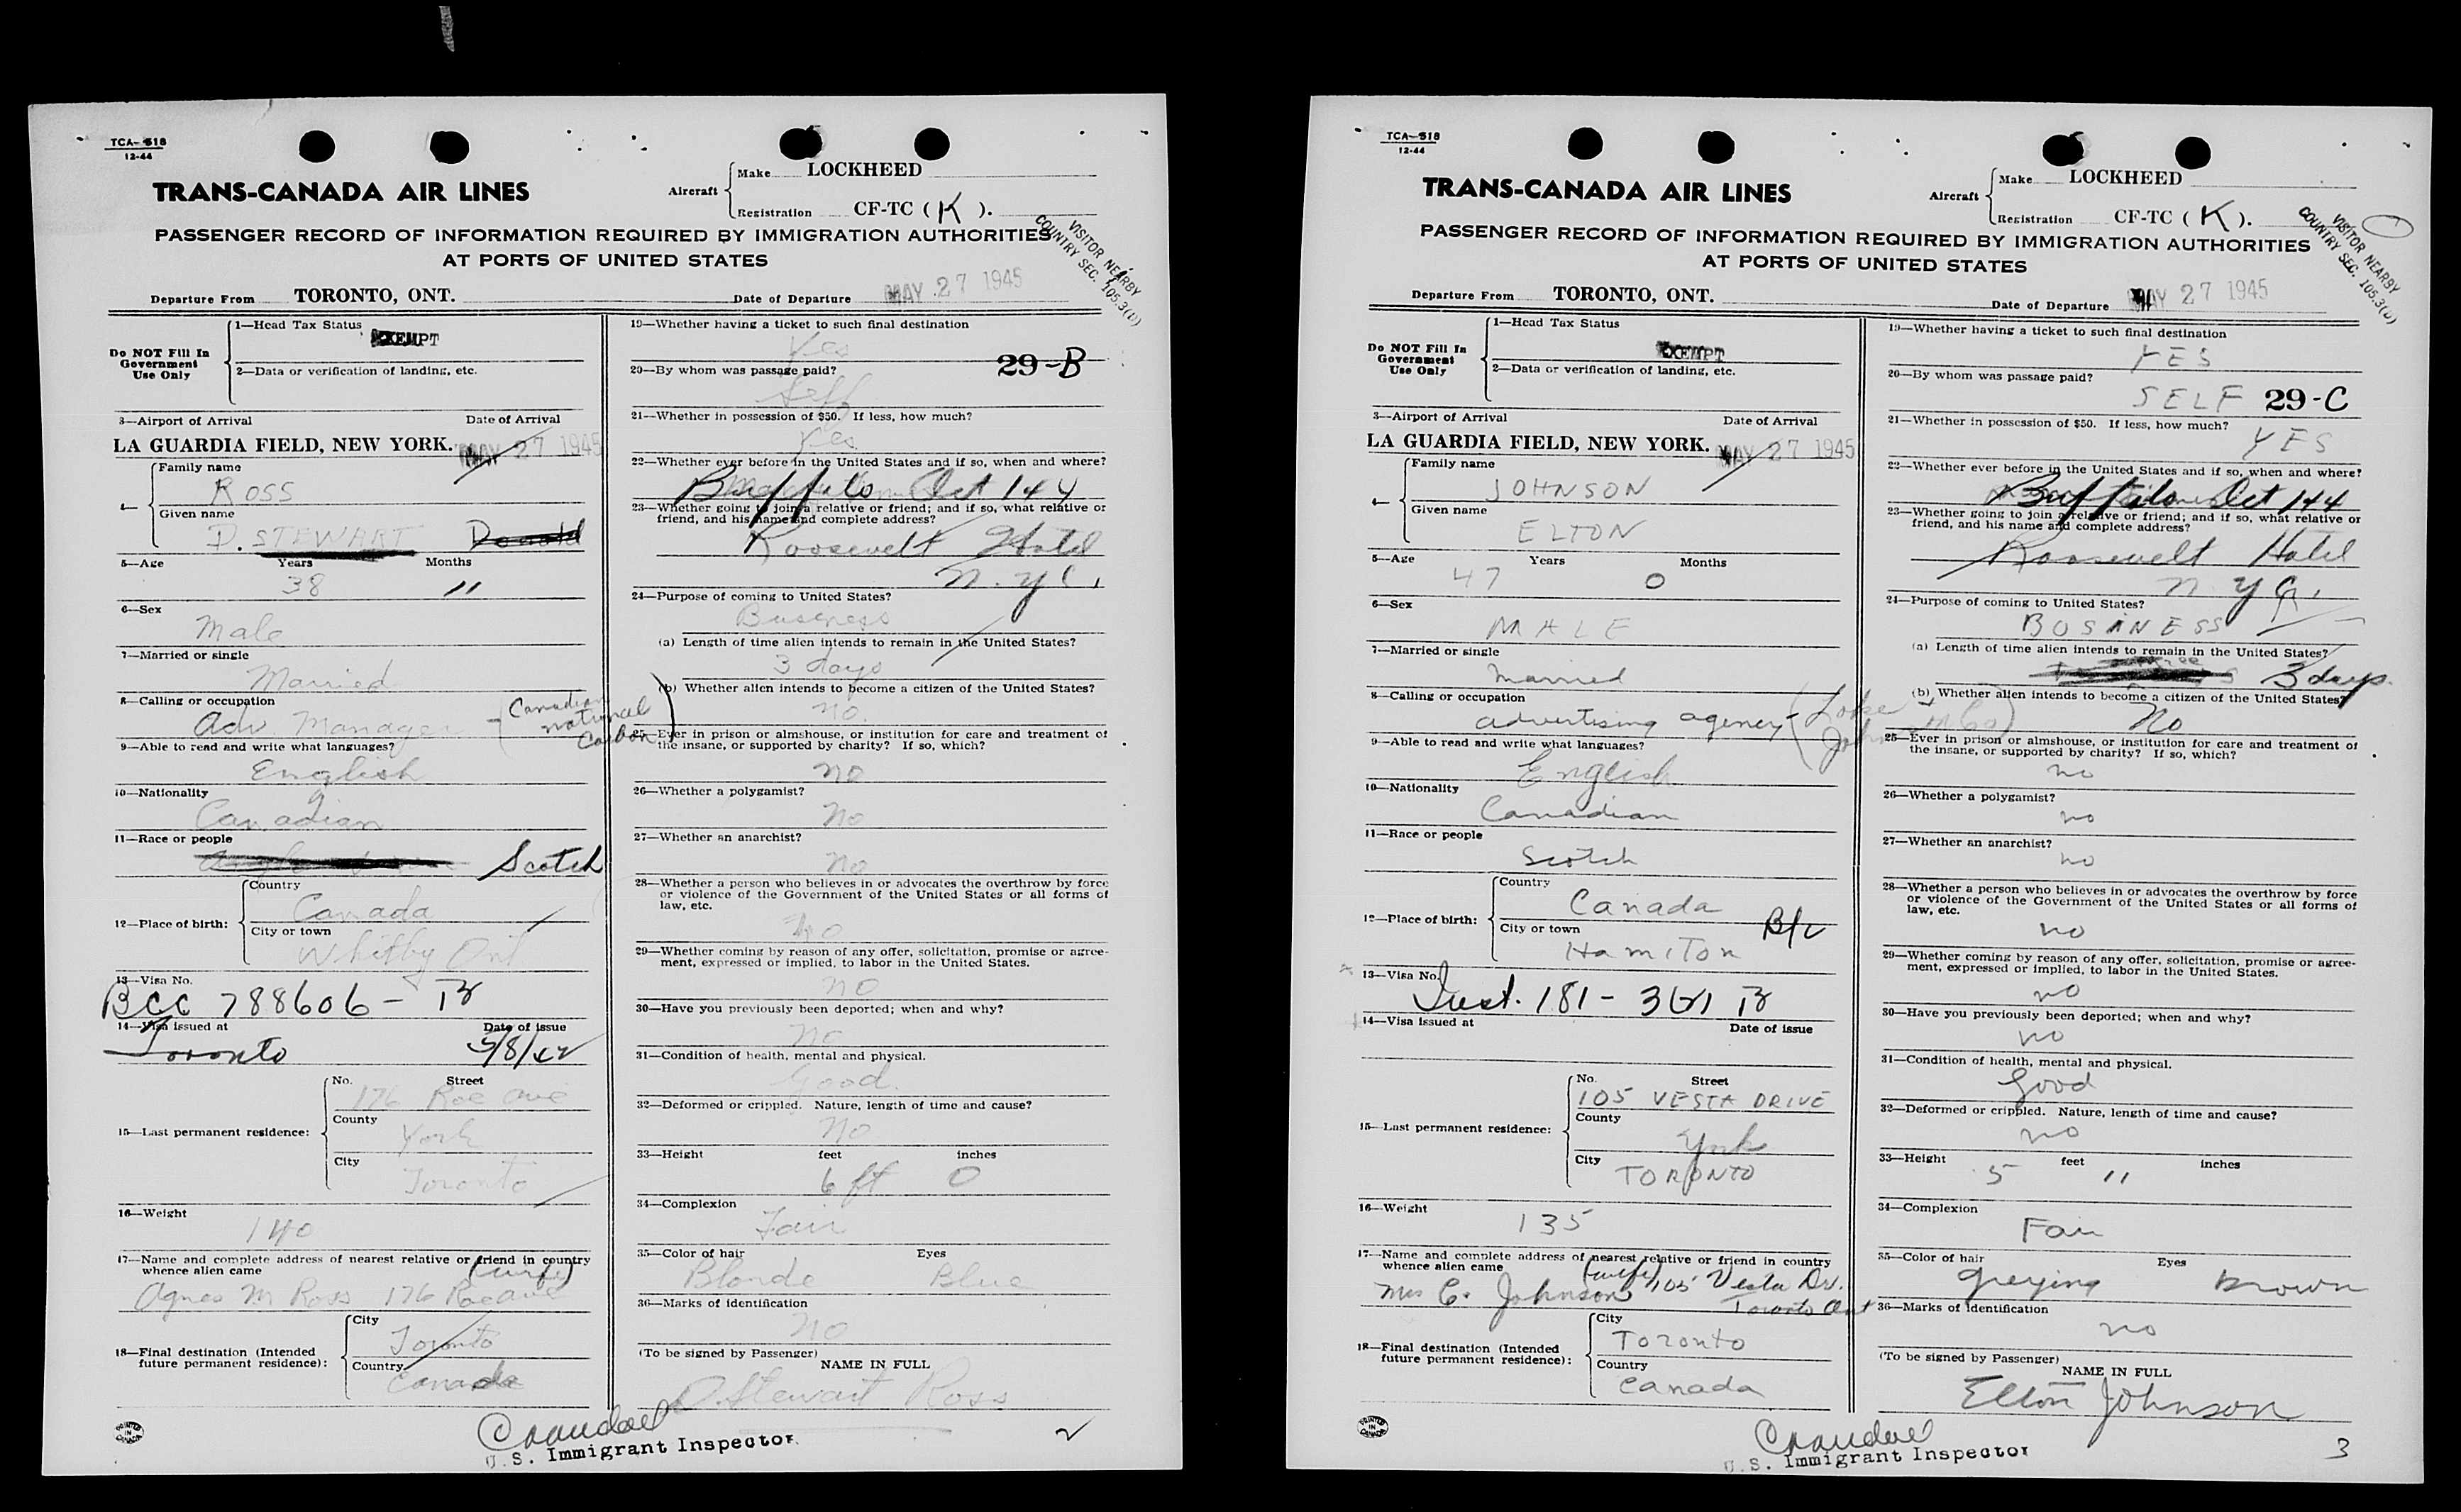 TCA-518
12-44
TRANS-CANADA AIR LINES
Aircraft
Make LOCKHEED
Registration CF-TC (K).
PASSENGER RECORD OF INFORMATION REQUIRED BY IMMIGRATION AUTHORITIES
AT PORTS OF UNITED STATES
VISITOR NEARBY
COUNTRY SEC. 105.3(b)
Departure From TORONTO, ONT.
Date of Departure MAY 27 1945
Do NOT Fill In
Government
Use Only
1—Head Tax Status
EXEMPT
2—Data or verification of landing, etc.
3—Airport of Arrival Date of Arrival
LA GUARDIA FIELD, NEW YORK. MAY 27 1945
4—
Family name
ROSS
Given name
D. STEWART Donald
5—Age Years Months
38 11
6—Sex
Male
7—Married or single
Married
8—Calling or occupation
Adv. Manager - (Canadian
national
Carbon)
9—Able to read and write what languages?
English
10—Nationality
Canadian
11—Race or people
Scotch
12—Place of birth:
Country
Canada
City or town
Whitby Ont
13—Visa No.
BCC 788606 - B
14—Visa issued at Date of issue
Toronto 5/8/42
15—Last permanent residence:
No. Street
176 Roe Ave
County
York
City
Toronto
16—Weight
140
17—Name and complete address of nearest relative or friend in country
whence alien came
(wife)
Agnes M Ross 176 Roe ave
18—Final destination (Intended
future permanent residence):
City
Toronto
Country
Canada
19—Whether having a ticket to such final destination
Yes
29-B
20—By whom was passage paid?
Self
21—Whether in possession of $50. If less, how much?
Yes
22—Whether ever before in the United States and if so, when and where?
Buffalo Oct 144
23—Whether going to join a relative or friend; and if so, what relative or
friend, and his name and complete address?
Roosevelt Hotel
N.Y.C.
24—Purpose of coming to United States?
Business
(a) Length of time alien intends to remain in the United States?
3 days
(b) Whether alien intends to become a citizen of the United States?
no.
25—Ever in prison or almshouse, or institution for care and treatment of
the insane, or supported by charity? If so, which?
no
26—Whether a polygamist?
no
27—Whether an anarchist?
no
28—Whether a person who believes in or advocates the overthrow by force
or violence of the Government of the United States or all forms of
law, etc.
no
29—Whether coming by reason of any offer, solicitation, promise or agree-
ment, expressed or implied, to labor in the United States.
no
30—Have you previously been deported; when and why?
no
31—Condition of health, mental and physical.
Good.
32—Deformed or crippled. Nature, length of time and cause?
no
33—Height feet inches
6 ft 0
34—Complexion
Fair
35—Color of hair Eyes
Blonde Blue
36—Marks of identification
no
(To be signed by Passenger)
NAME IN FULL
D. Stewart Ross
U.S. Immigrant Inspector.
2
PRINTED
IN
CANADA
TCA-518
12-44
TRANS-CANADA AIR LINES
Aircraft
Make LOCKHEED
Registration CF-TC (K).
PASSENGER RECORD OF INFORMATION REQUIRED BY IMMIGRATION AUTHORITIES
AT PORTS OF UNITED STATES
VISITOR NEARBY
COUNTRY SEC. 105.3(b)
Departure From TORONTO, ONT.
Date of Departure MAY 27 1945
Do NOT Fill In
Government
Use Only
1—Head Tax Status
EXEMPT
2—Data or verification of landing, etc.
3—Airport of Arrival Date of Arrival
LA GUARDIA FIELD, NEW YORK. MAY 27 1945
4—
Family name
JOHNSON
Given name
ELTON
5—Age Years Months
47 0
6—Sex
MALE
7—Married or single
Married
8—Calling or occupation
advertising agency -
9—Able to read and write what languages?
English
10—Nationality
Canadian
11—Race or people
Scotch
12—Place of birth:
Country
Canada
B/c
City or town
HamiTon
13—Visa No.
181-
14—Visa issued at Date of issue
15—Last permanent residence:
No. Street
105 VESTA DRIVE
County
York
City
TORONTO
16—Weight
135
17—Name and complete address of nearest relative or friend in country
whence alien came
Mrs E. Johnson (wife) 105 Vesta Dr.
Toronto Ont
18—Final destination (Intended
future permanent residence):
City
Toronto
Country
Canada
19—Whether having a ticket to such final destination
YES
20—By whom was passage paid?
SELF 29-C
21—Whether in possession of $50. If less, how much?
YES
22—Whether ever before in the United States and if so, when and where?
Buffalo Oct 144
23—Whether going to join a relative or friend; and if so, what relative or
friend, and his name and complete address?
Roosevelt Hotel
N.Y.C.
24—Purpose of coming to United States?
BUSINESS
(a) Length of time alien intends to remain in the United States?
3 days.
(b) Whether alien intends to become a citizen of the United States?
No
25—Ever in prison or almshouse, or institution for care and treatment of
the insane, or supported by charity? If so, which?
no
26—Whether a polygamist?
no
27—Whether an anarchist?
no
28—Whether a person who believes in or advocates the overthrow by force
or violence of the Government of the United States or all forms of
law, etc.
no
29—Whether coming by reason of any offer, solicitation, promise or agree-
ment, expressed or implied, to labor in the United States.
no
30—Have you previously been deported; when and why?
no
31—Condition of health, mental and physical.
Good
32—Deformed or crippled. Nature, length of time and cause?
no
33—Height feet inches
5 11
34—Complexion
Fair
35—Color of hair Eyes
greying brown
36—Marks of identification
no
(To be signed by Passenger)
NAME IN FULL
Elton Johnson
U.S. Immigrant Inspector
3
PRINTED
IN
CANADA